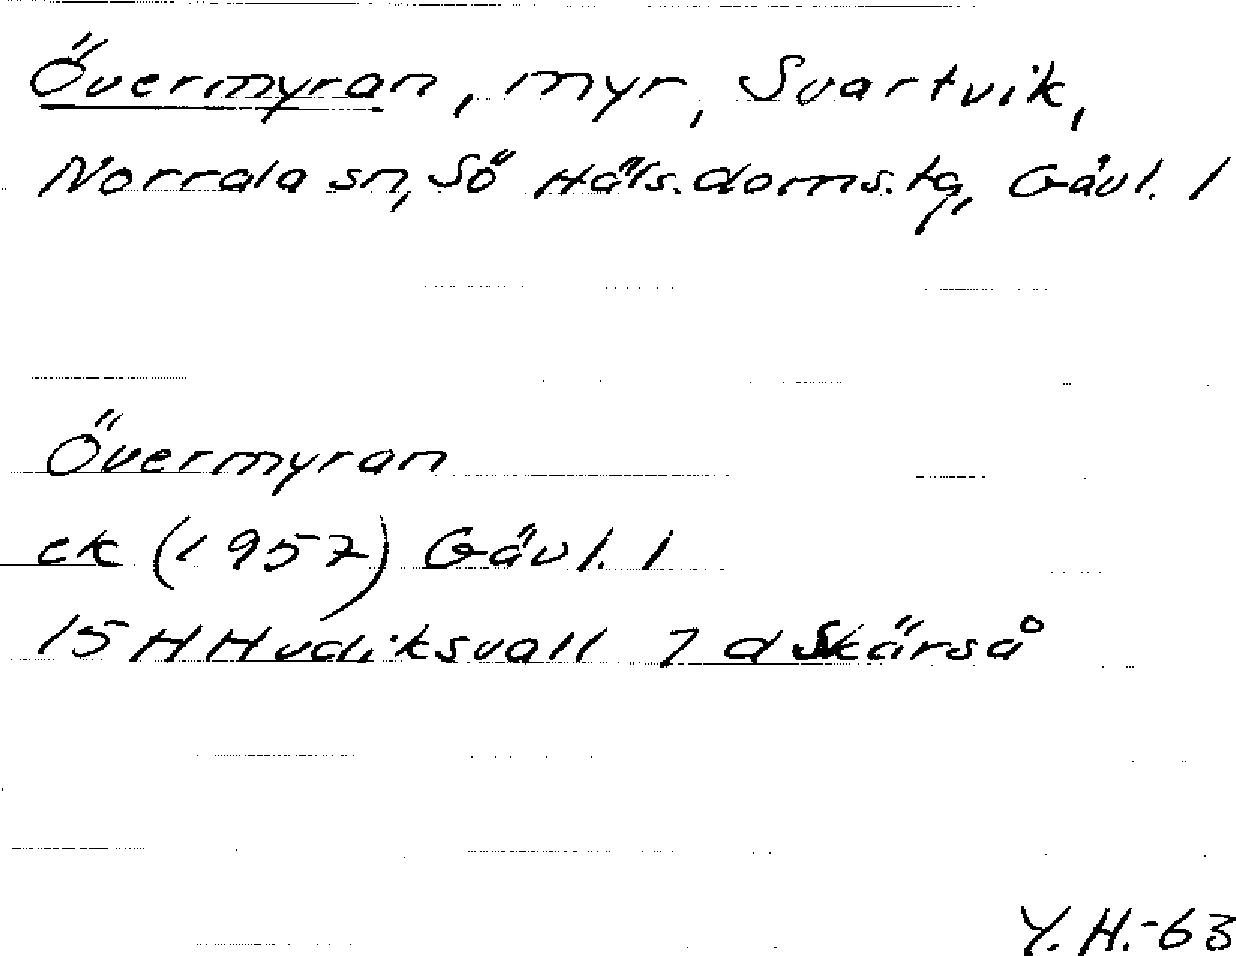 Övermyran, myr, Svartvik,
Norrala sn, Sö Häls. doms. tg, Gävl. l
Övermyran
ek (1957) Gävl. l
15 H Hudiksvall 7 d Skärså
Y. H.-63